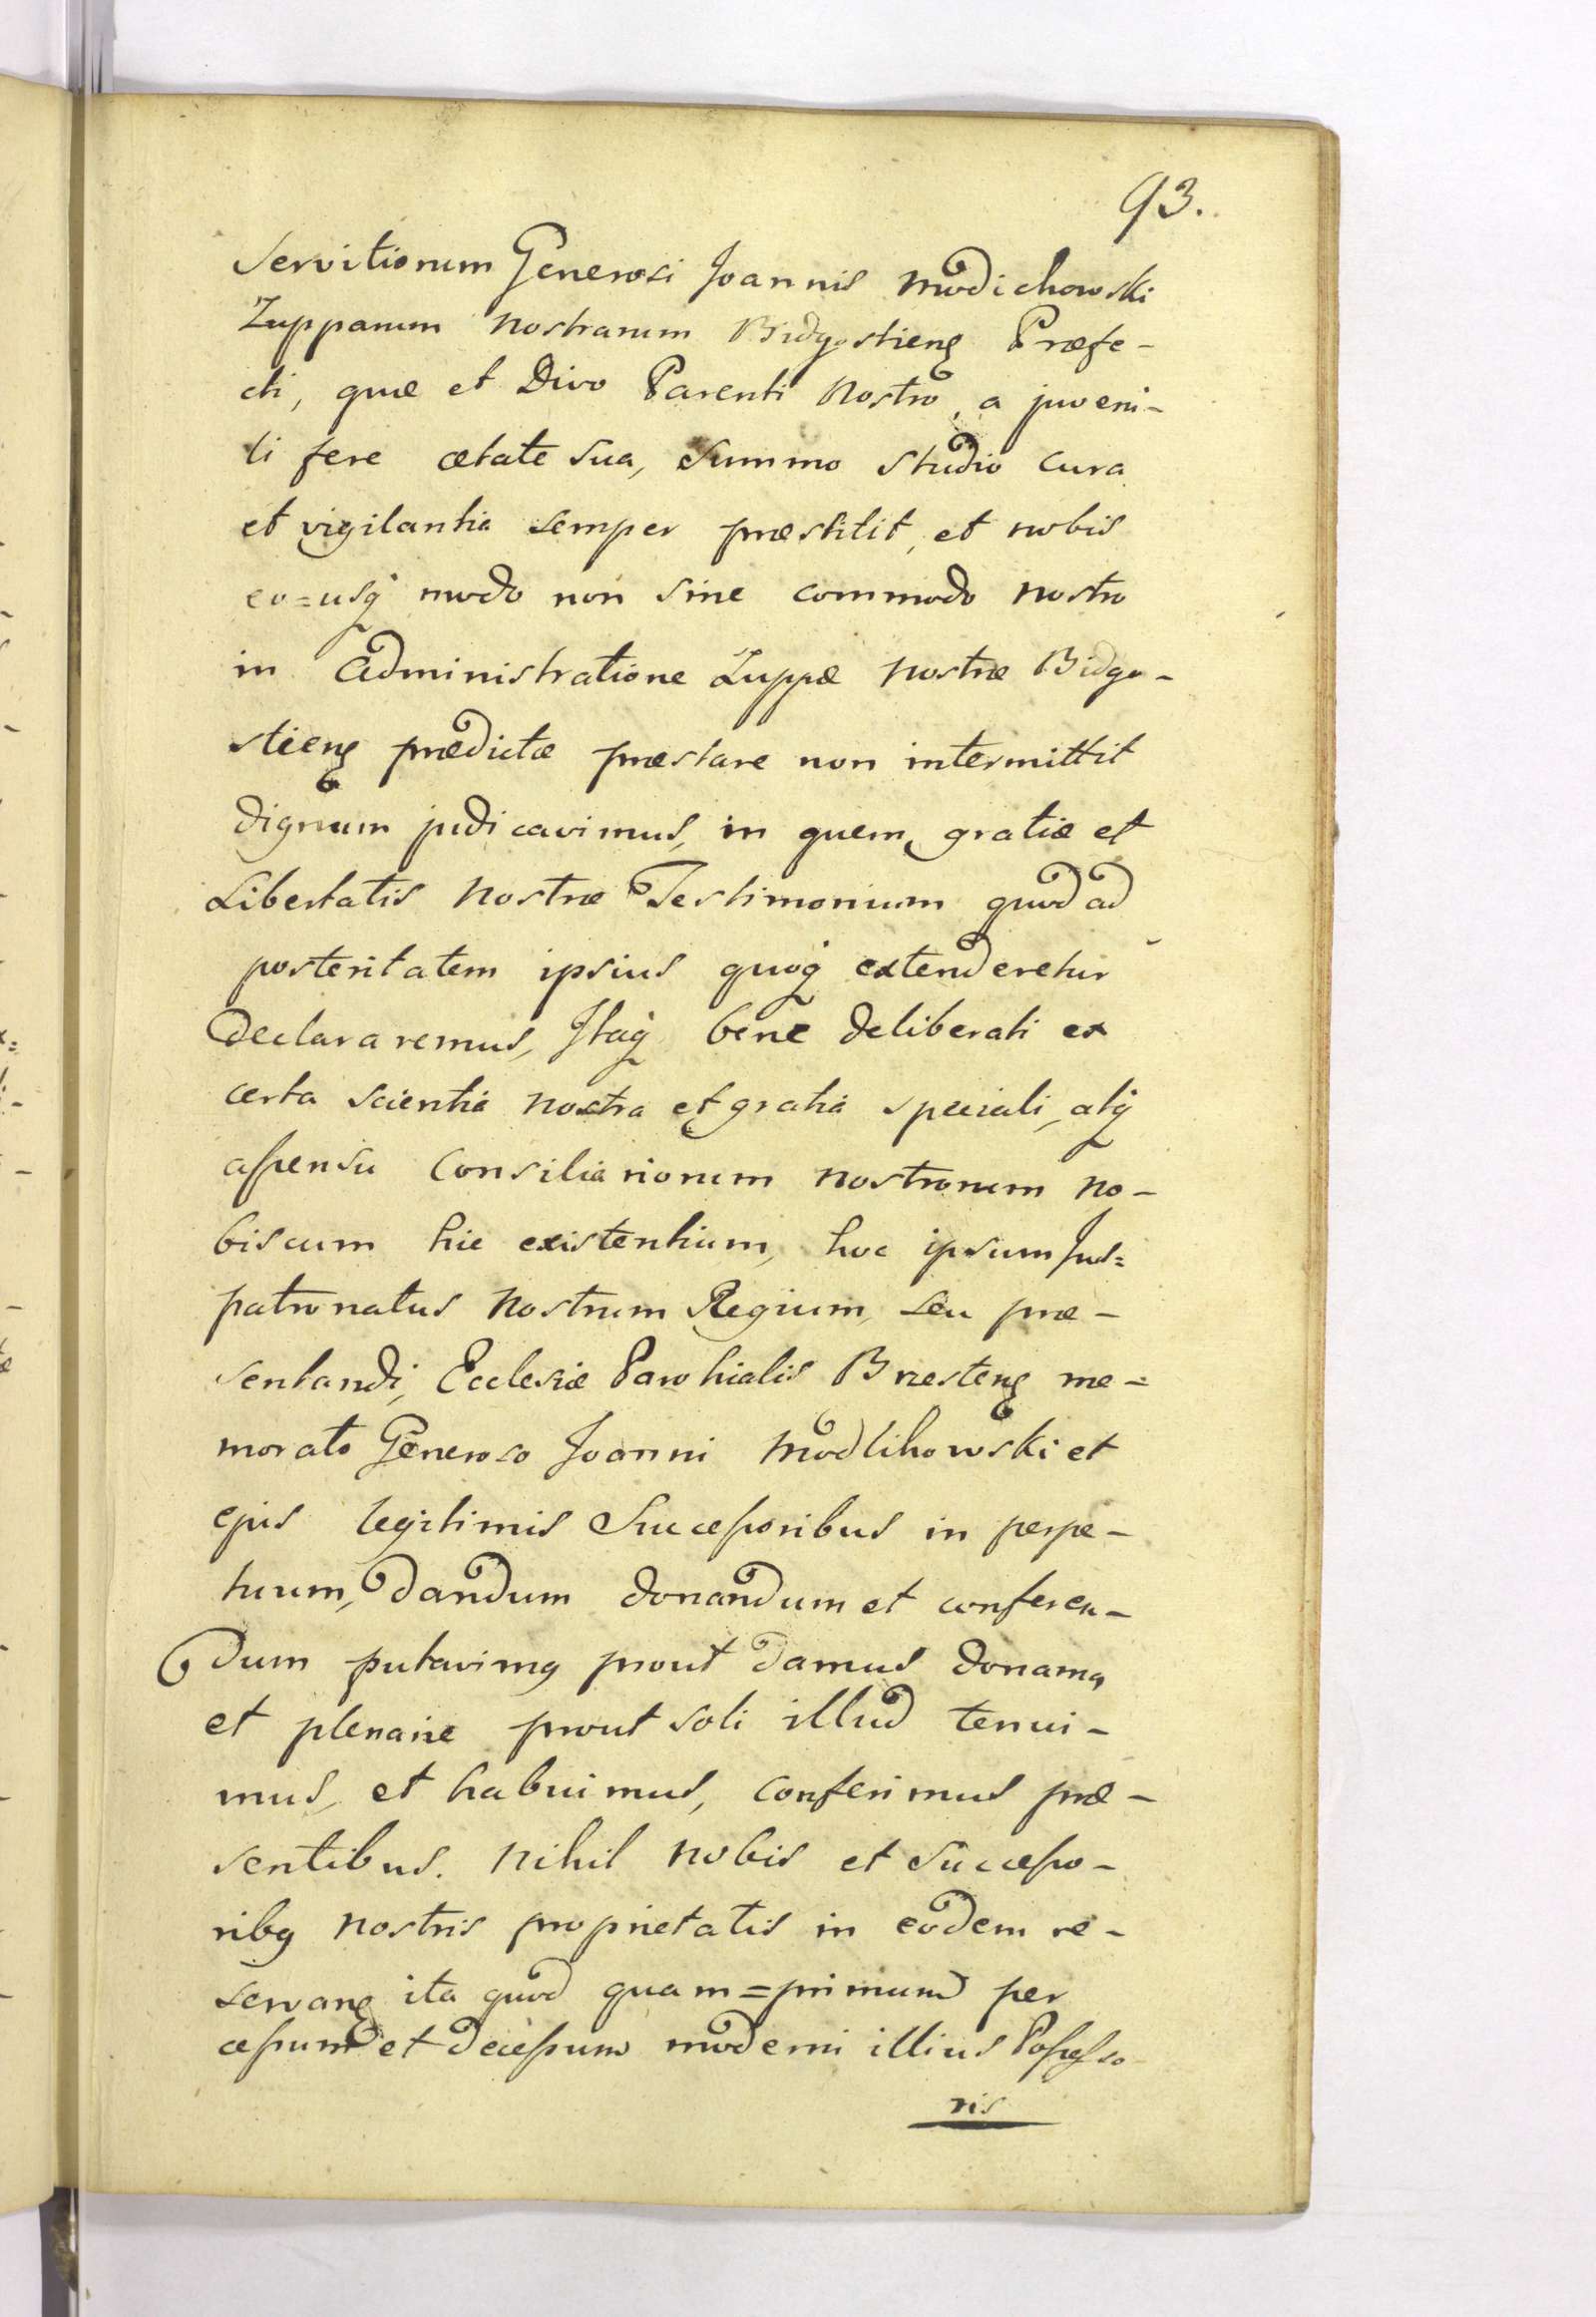 93.
Servitiorum Generosi Joannis Modichowski
Zuppanum nostrarum Bidgostieng Præfe-
cti, quæ et Divo Parenti Nostro, a juveni-
li fere ætate sua, summo studio cura
et vigilantia semper præstitit, et nobis
eo=usq modo non sine commodo nostro
in administratione Zuppæ nostræ Bidgo-
stieng prædictæ præstare non intermittit
dignum judicavimus, in quem gratiæ et
Libertatis Nostræ Testimonium quod ad
posteritatem ipsius quoq extenderetur
declararemus, Itaq bene deliberati ex
certa scientia nostra et gratia speciali, atq
assensu Consiliariorum nostrorum no-
biscum hic existentium, hoc ipsum Jus=
patronatus Nostrum Regium, seu præ-
sentandi, Ecclesiæ Parohialis Bresteng me=
morato Generoso Joanni Modlihowski et
ejus legitimis Successoribus in perpe-
tuum, dandum donandum et conferen-
dum putavimq prout damus donamq
et plenarie prout soli illud tenui-
mus, et habuimus, conferimus præ-
sentibus. Nihil nobis et Successo-
ribq nostris proprietatis in eodem re-
servang ita quod quam=primum per
cessum et decessum moderni illius Possesso
ris